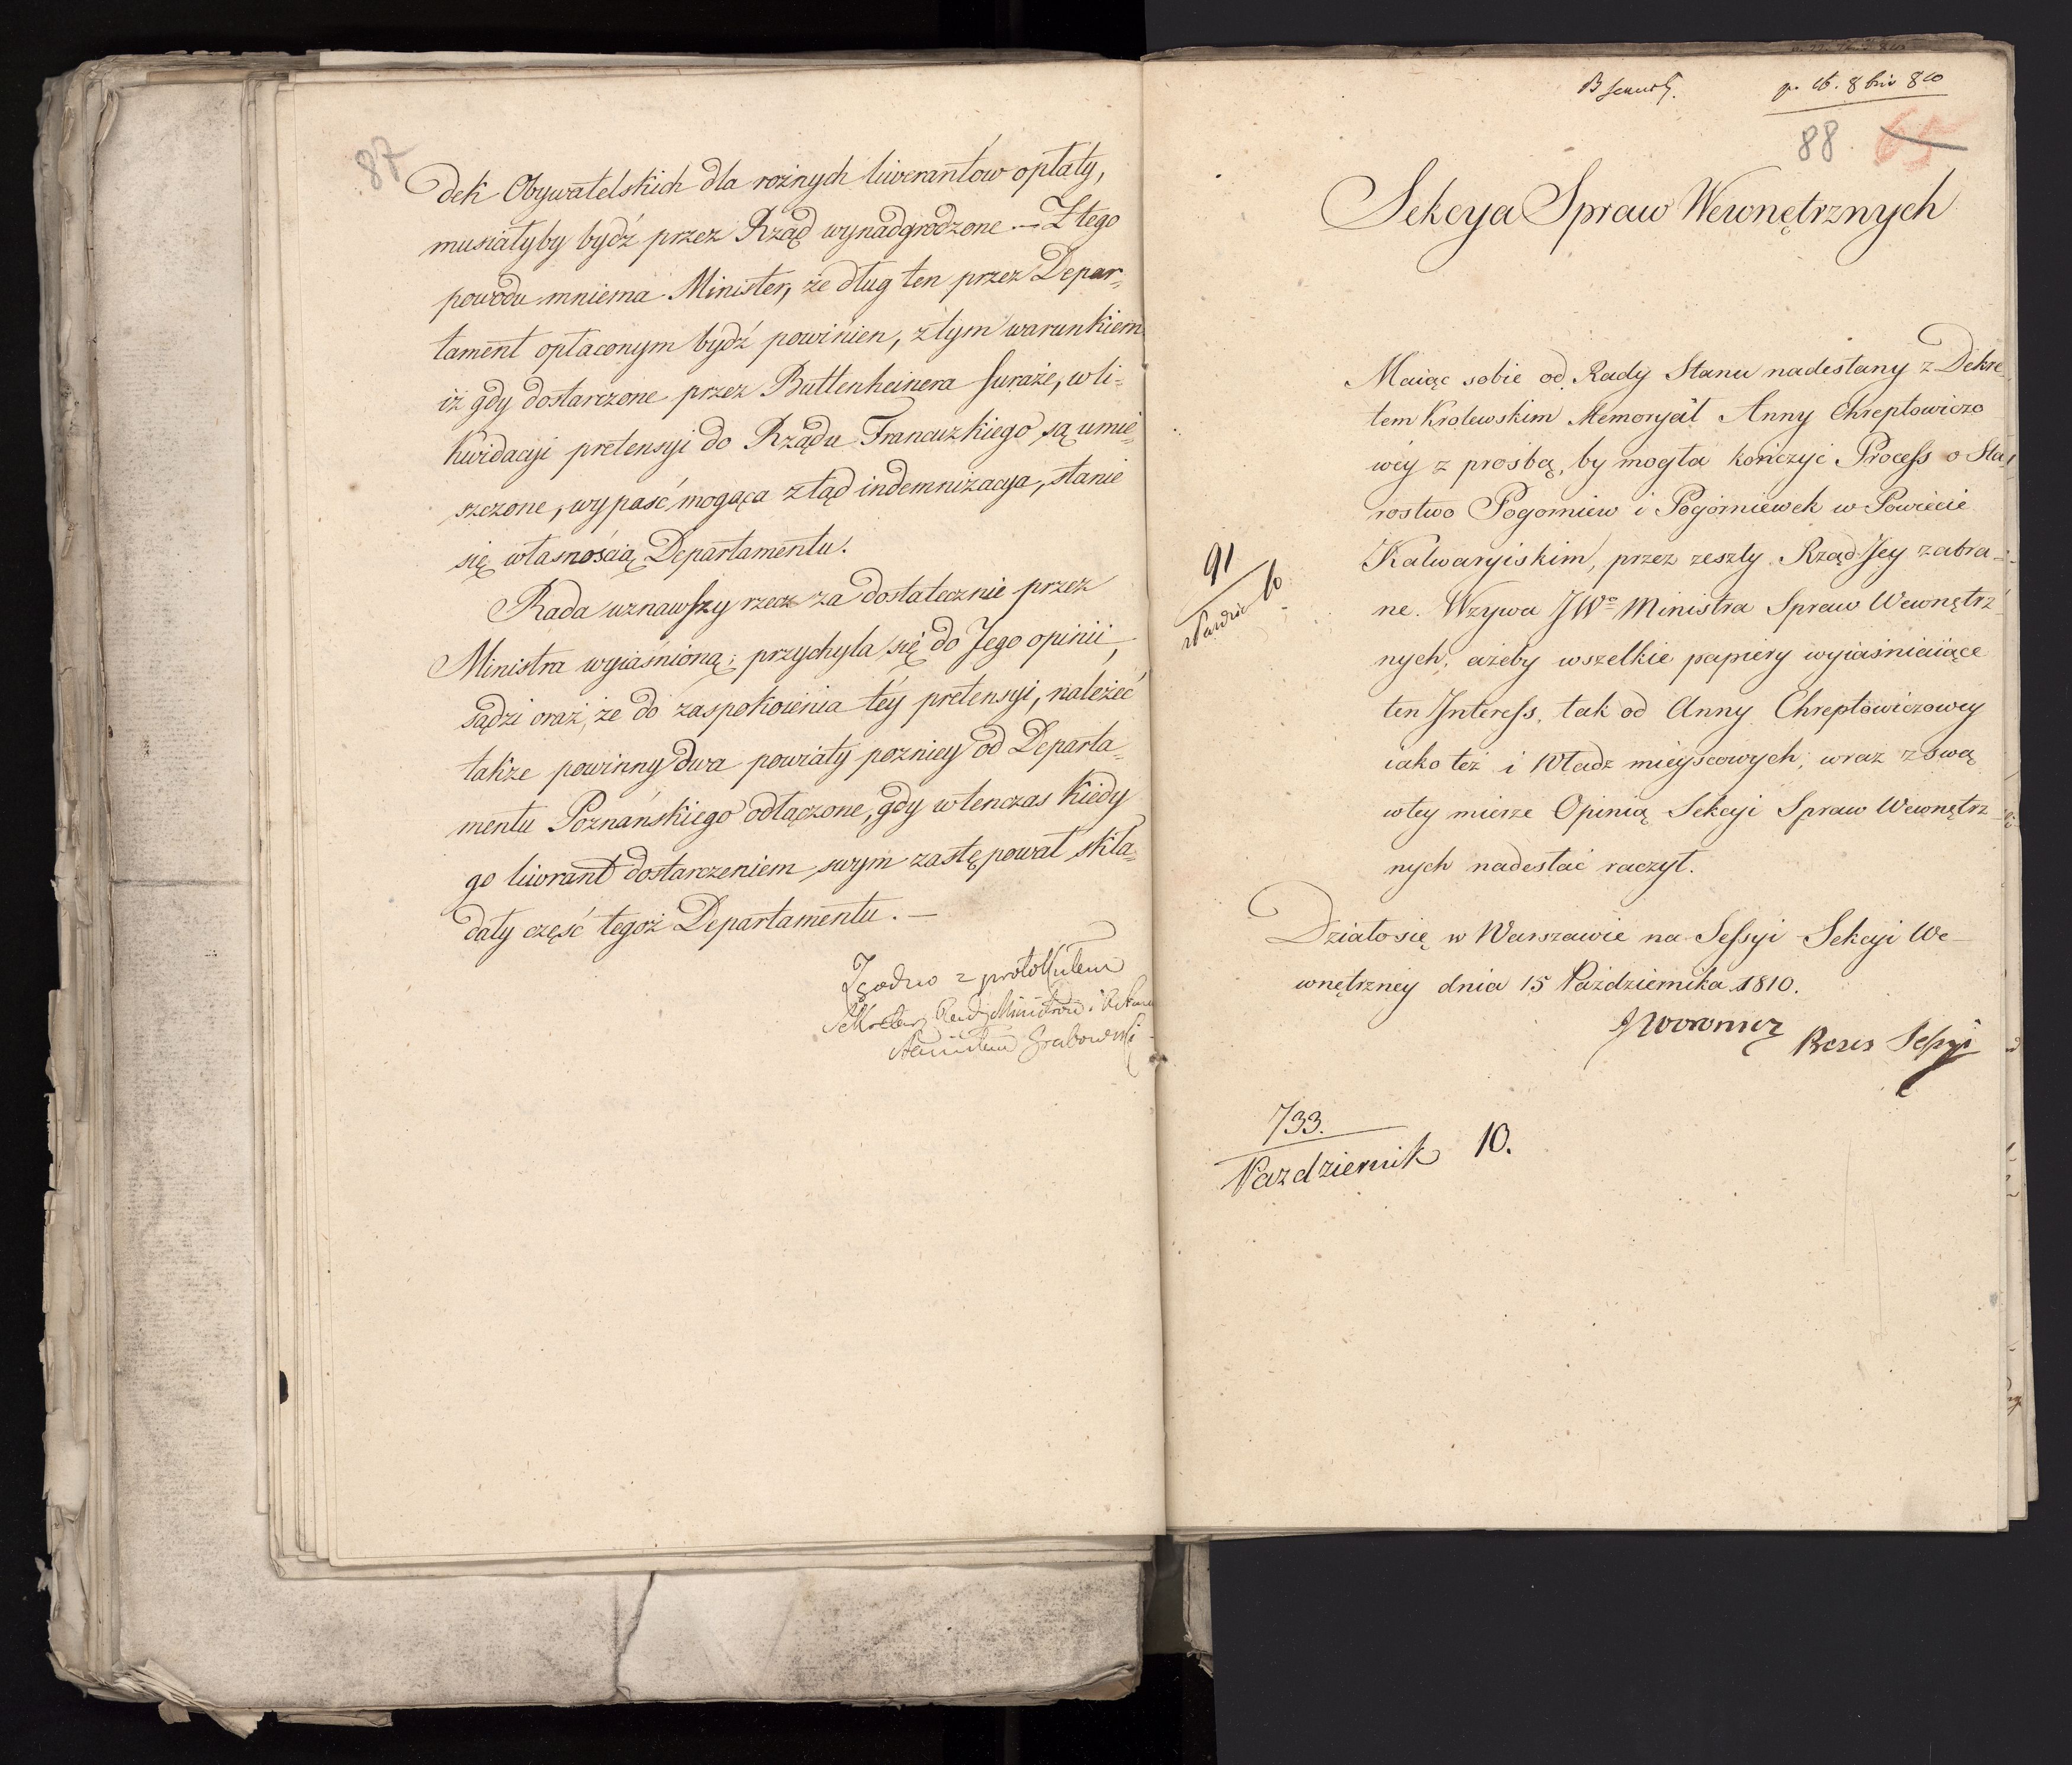 87
dek Obywatelskich dla rożnych liwerantow opłaty,
musiałyby bydź przez Rząd wynadgrodzone. — Z tego
powodu mniema Minister, że dług ten przez Depar-
tament opłaconym bydź powinien, z tym warunkiem
iż gdy dostarczone przez Buttenheinera furaże, w li-
kwidacyi pretensyi do Rządu Francuzkiego są umie-
szczone, wypaść mogąca ztąd indemnizacya, stanie
się własnością Departamentu.
Rada uznawszy rzecz za dostatecznie przez
Ministra wyiaśnioną; przychyla się do Jego opinii,
sądzi oraz, że do zaspokoienia téy pretensyi, należeć
także powinny dwa powiaty pozniey od Departa-
mentu Poznańskiego odłączone, gdy wtenczas kiedy
go liwrant dostarczeniem swym zastępował skła-
dały część tegoż Departamentu. —
Zgodno z protokułem
Sekretarz Rady Ministrów
Stanisław Grabowski
p. 16. 8bris 810
88. 65
Sekcya Spraw Wewnętrznych
Maiąc sobie od Rady Stanu nadesłany z Dekre-
tem Krolewskim Memoryał Anny Chreptowiczo
wéy z prosbą, by mogła kończyć Process o Sta
rostwo Pogorniew i Pogórniewek w Powiecie
Kalwaryiskim, przez zeszły Rząd Jey zabra-
ne. Wzywa JWo Ministra Spraw Wewnętrz
nych, ażeby wszelkie papiery wyiaśniaiące
ten Interess, tak od Anny Chreptowiczowey
iako też i Władz mieyscowych, wraz z swą
w tey mierze Opinią Sekcyi Spraw Wewnętrz
nych nadesłać raczył.
91
10
Działo się w Warszawie na Sessyi Sekcyi We-
wnętrzney dnia 15 Października 1810.
J Woronicz Prezes Sessyi
733.
Pazdziernik 10.